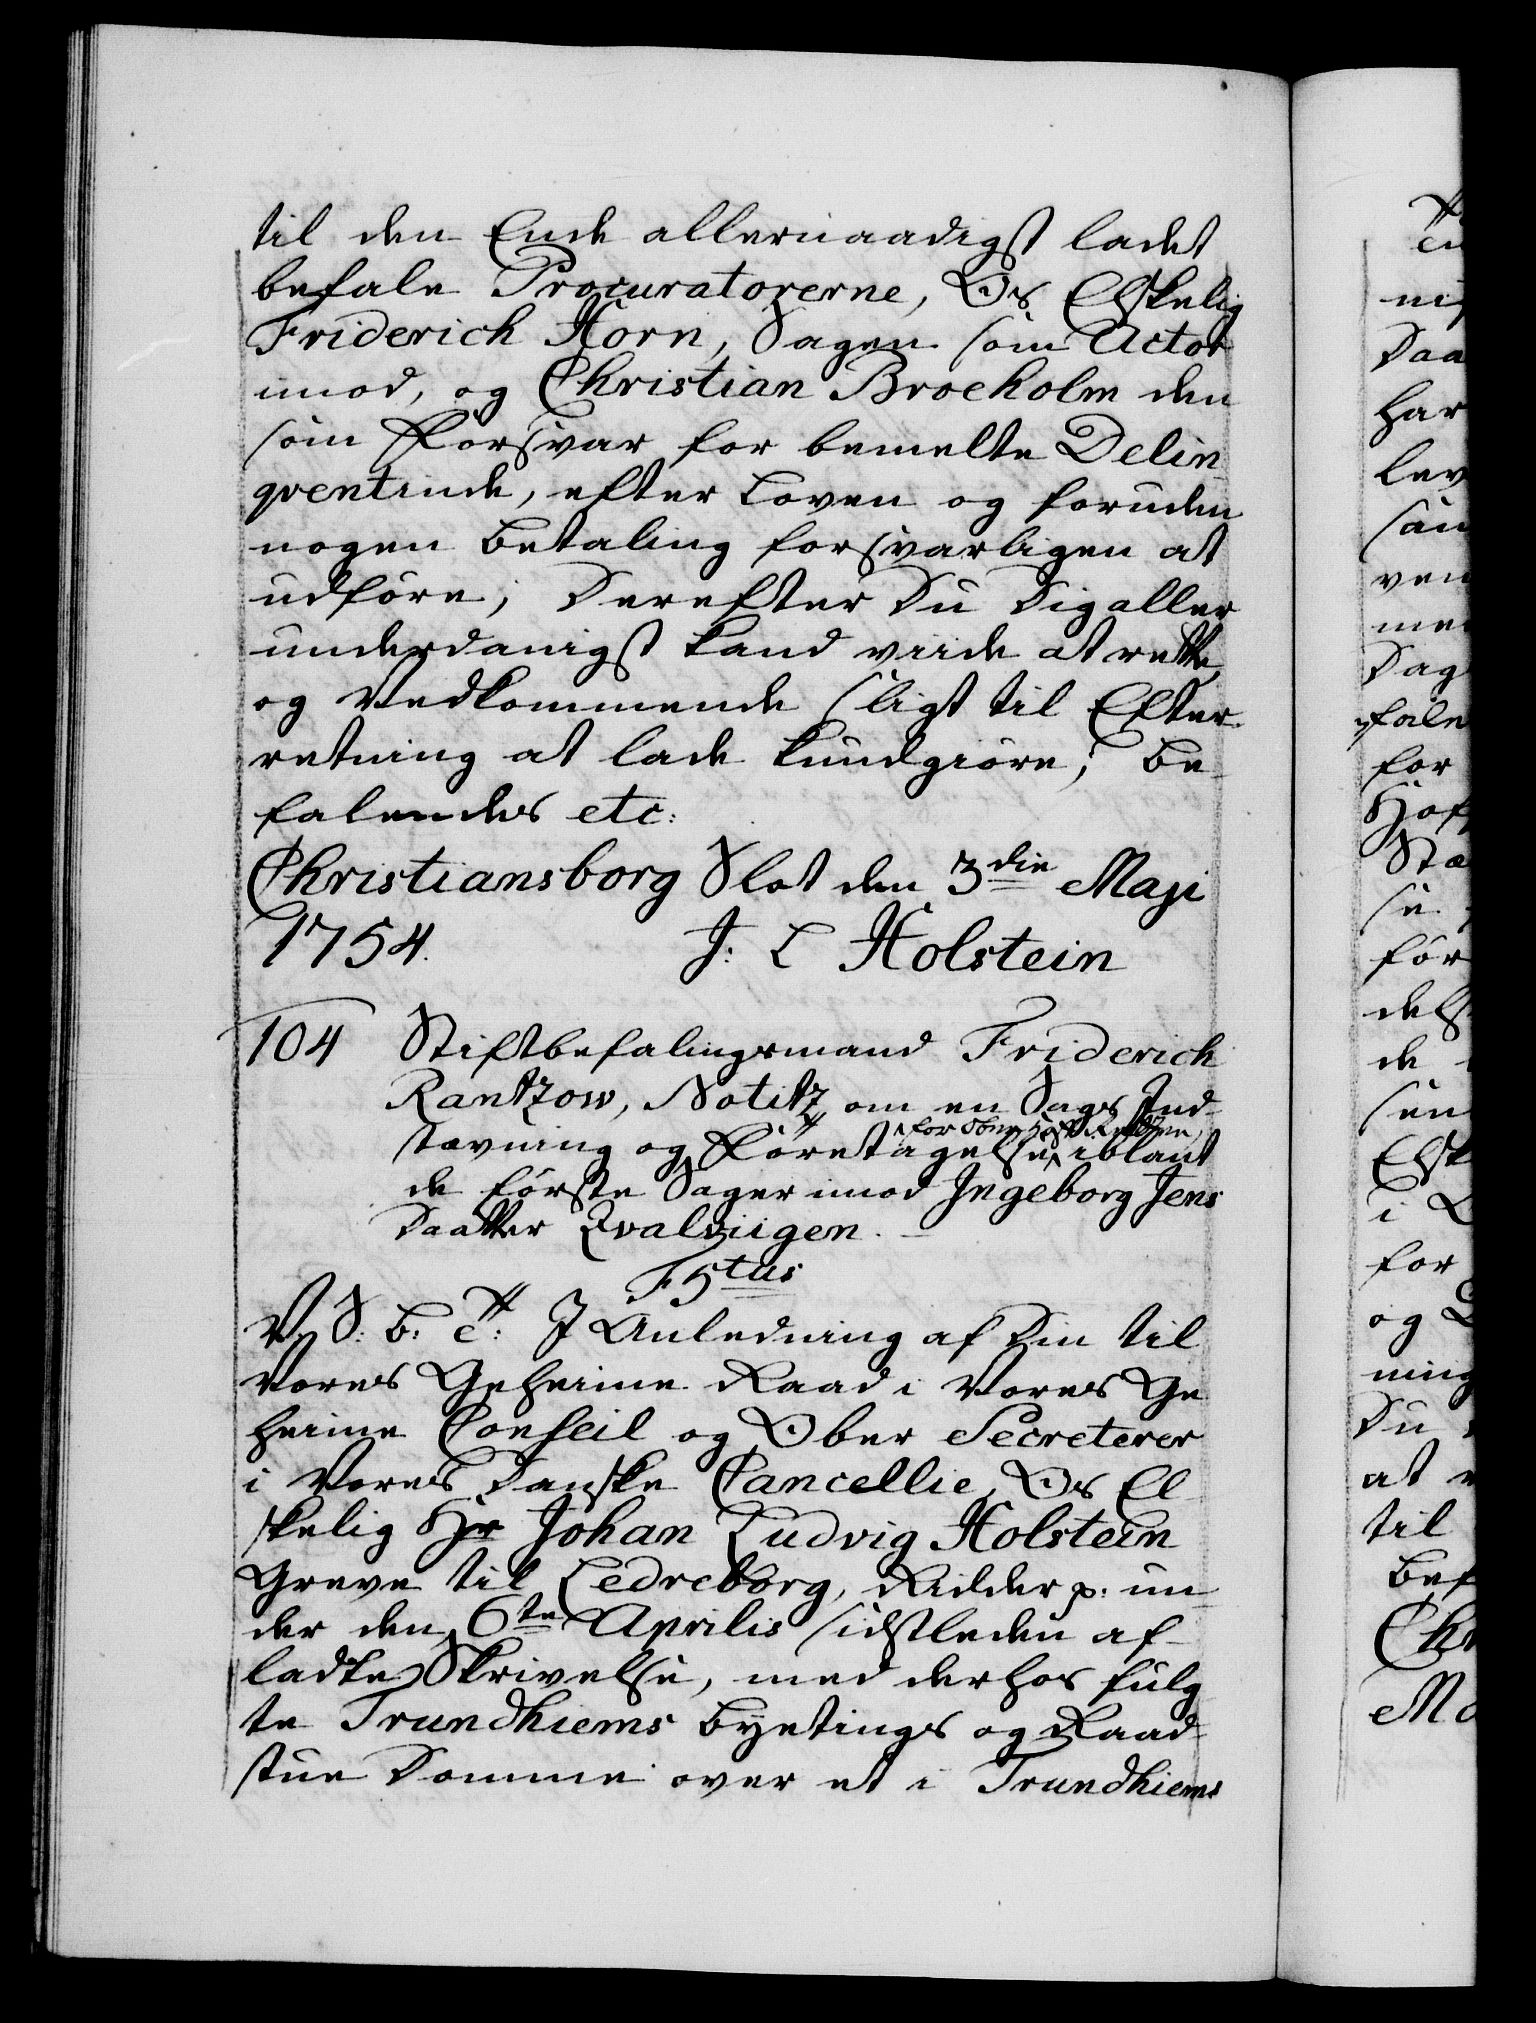 til den Ende allernaadigst ladet
befale Procuratorerne, Os Elskelig
Friderich Horn, Sagen som Actor
imod, og Christian Brockholm den
som Forsvar for bemelte Delin
qventinde, efter Loven og foruden
nogen Betaling forsvarligen at
udføre; Derefter Du Dig aller
underdanigst kand viide at rette,
og Vedkommende sligt til Efter
retning at lade kundgiøre; Be
falendes etc:
Christiansborg Slot den 3die Maji
1754. J: L Holstein
104 Stiftbefalingsmand Friderich
Rantzow, Notitz om en Sags Ind
stævning og Foretagelse, for Ober Hof Retten, iblant
de første Sager imod Ingeborg Jens
Daatter Qvalviigen.
F 5tus
V. S: B: C: I Anledning af Din til
Vores Geheime Raad i Vores Ge
heime Conseil og Ober Secreterer
i Vores Danske Cancellie, Os El
skelig Hr Johan Ludvig Holstein
Greve til Ledreborg, Ridder p: un
der den 6te Aprilis sidstleden af
ladte Skrivelse, med derhos fulg
te Trundhiems Byetings og Raad
stue Domme over et i Trundhiems